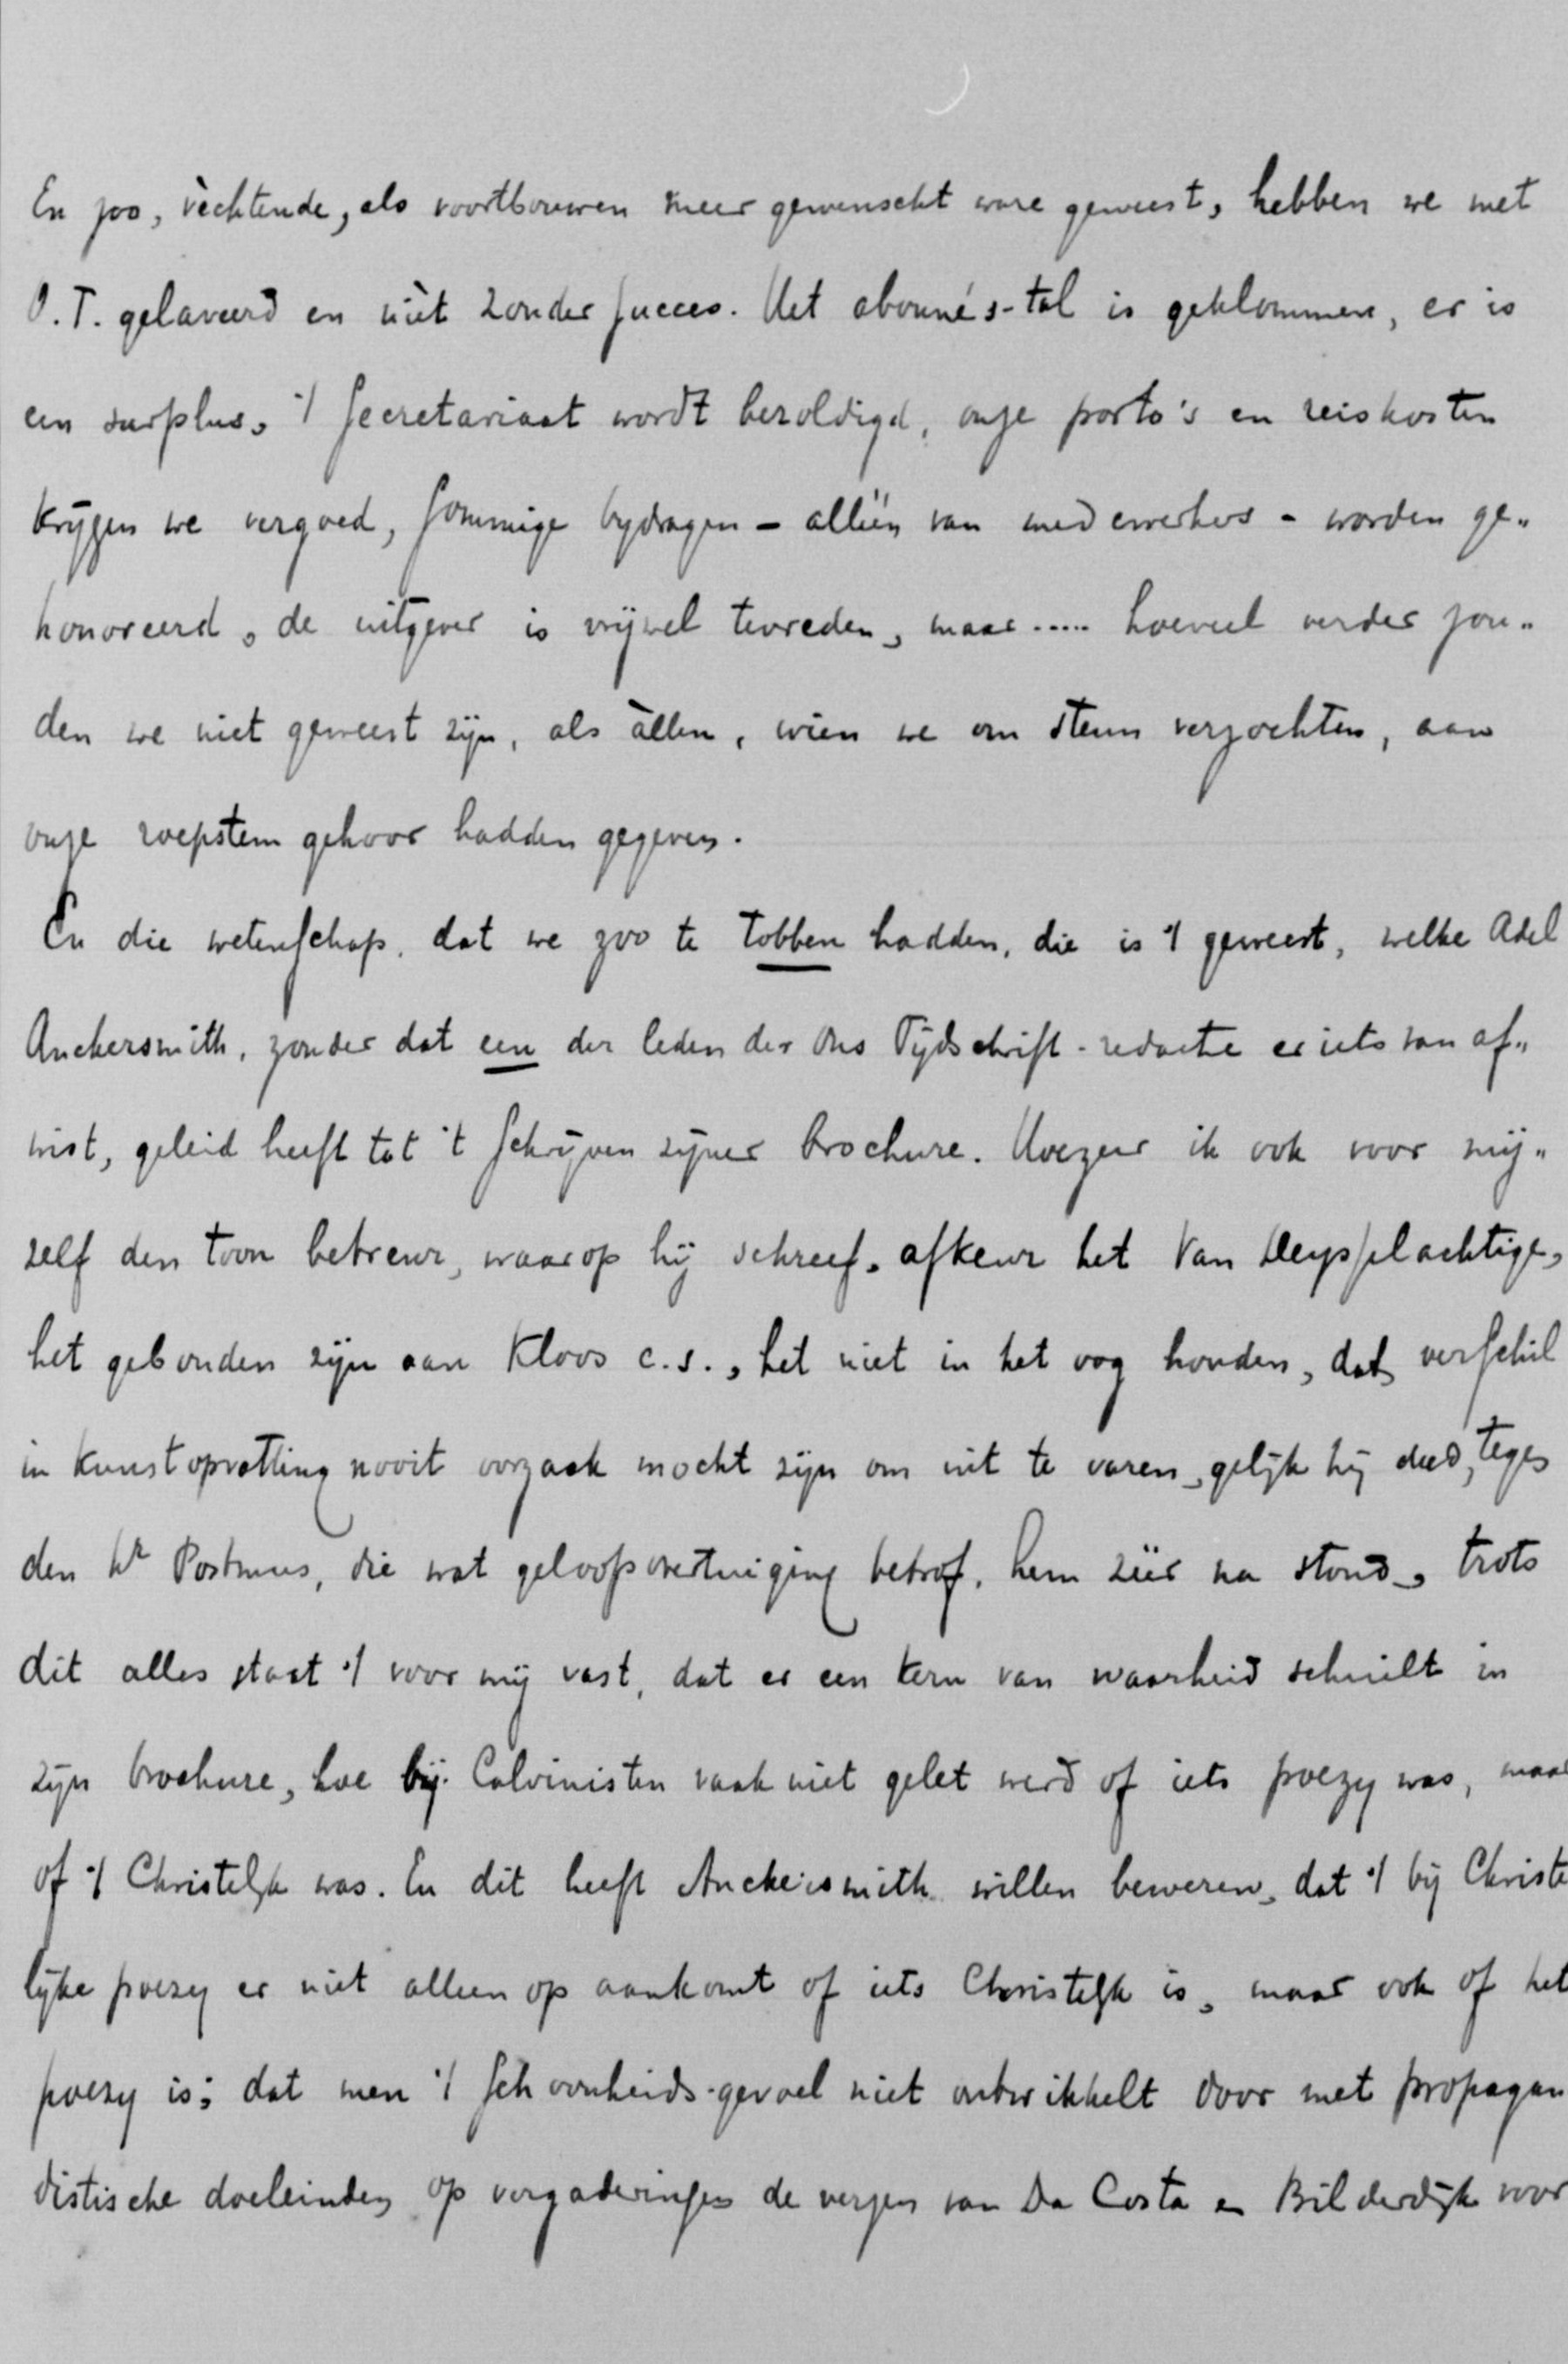 En zoo, vèchtende, als voortbouwen meer gewenscht ware geweest, hebben we met
O.T. gelaveerd en nièt zonder succes. Het abonné's-tal is geklommen, er is
een surplus, 't secretariaat wordt bezoldigd, onze porto's en reiskosten
krijgen we vergoed, sommige bydragen - alléén van medewerkers - worden ge„
honoreerd, de uitgever is vrijwel tevreden, maar ..... hoeveel verder zou„
den we niet geweest zijn, als àllen, wien we om steun verzochten, aan
onze roepstem gehoor hadden gegeven.
En die wetenschap, dat we zoo te tobben hadden, die is 't geweest, welke Adel
Anckersmith, zonder dat een der leden der Ons Tijdschrift-redactie er iets van af„
wist, geleid heeft tot 't schrijven zijner brochure. Hoezeer ik ook voor mij„
zelf den toon betreur, waarop hij schreef, afkeur het Van Deysselachtige,
het gebonden zijn aan Kloos c.s., het niet in het oog houden, dat verschil
in kunstopvatting nooit oorzaak mocht zijn om uit te varen, gelijk hij deed, tegen
den hr Postmus, die wat geloofsovertuiging betrof, hem zéér na stond, trots
dit alles staat 't voor mij vast, dat er een kern van waarheid schuilt in
zijn brochure, hoe bij Calvinisten vaak niet gelet werd of iets poezy was, maar
of 't Christelijk was. En dit heeft Anckersmith willen beweren, dat 't bij Christe
lijke poezy er niet alleen op aankomt of iets Christelijk is, maar ook of het
poezy is; dat men 't schoonheids-gevoel niet ontwikkelt door met propagan
distische doeleinden op vergaderingen de verzen van Da Costa en Bilderdijk voor